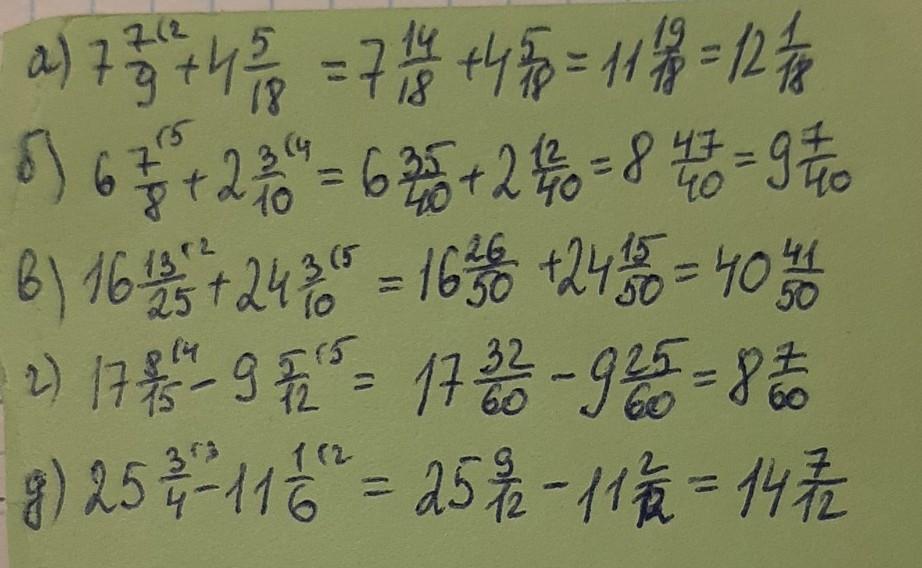 а) 7 7/9 (2 + 4 5/18 = 7 14/18 + 4 5/18 = 11 19/18 = 12 1/18
б) 6 7/8 (5 + 2 3/10 (4 = 6 35/40 + 2 12/40 = 8 47/40 = 9 7/40
в) 16 13/25 (2 + 24 3/10 (5 = 16 26/50 + 24 15/50 = 40 41/50
г) 17 8/15 (4 - 9 5/12 (5 = 17 32/60 - 9 25/60 = 8 7/60
д) 25 3/4 (3 - 11 1/6 (2 = 25 9/12 - 11 2/12 = 14 7/12